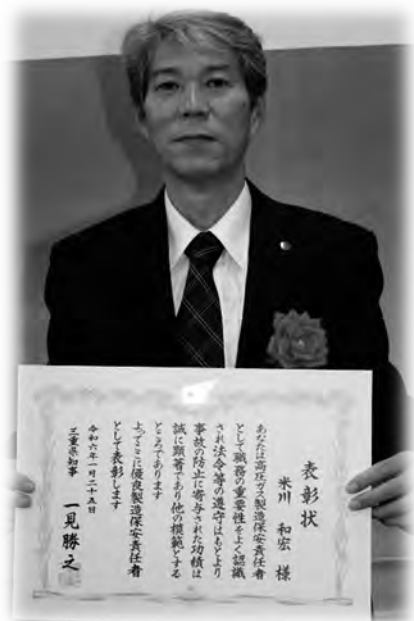 表彰状
米川 和宏 様
あなたは高圧ガス製造保安責任者
として職務の重要性をよく認識
され法令等の遵守はもとより
事故の防止に寄与された功績は
誠に顕著であり他の模範とする
ところであります
よってここに優良製造保安責任者
として表彰します
令和六年一月二十五日
三重県知事 一見勝之